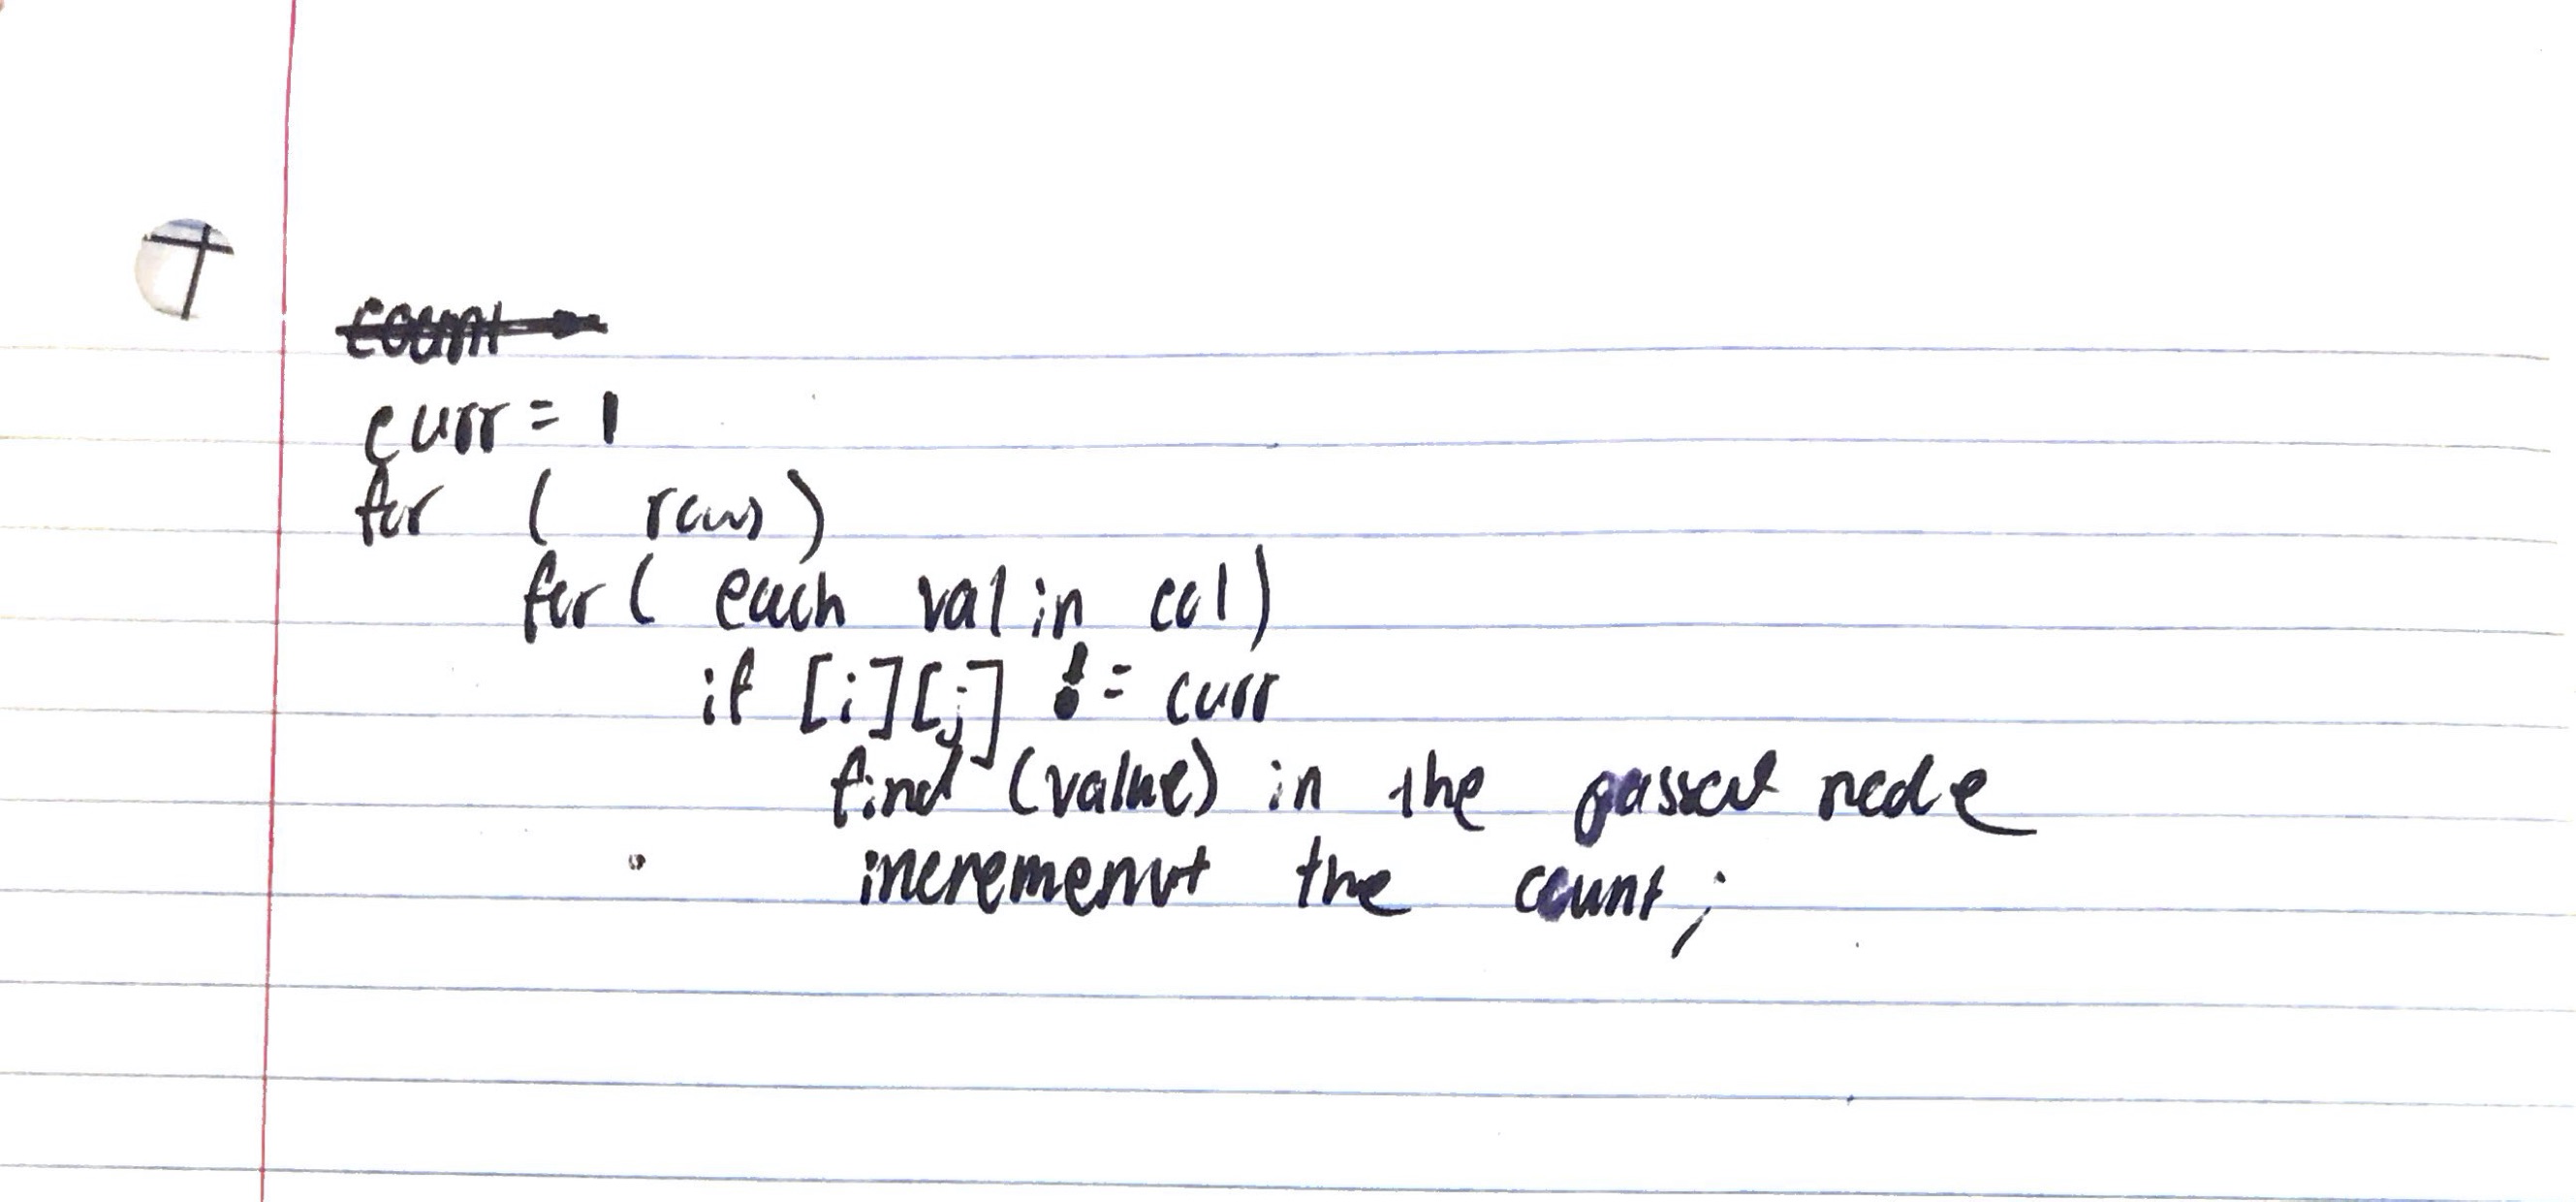 T
count
curr = 1
for ( rows)
for ( each val in col)
if [i][j] != curr
find (value) in the passed node
incremenvt the count;